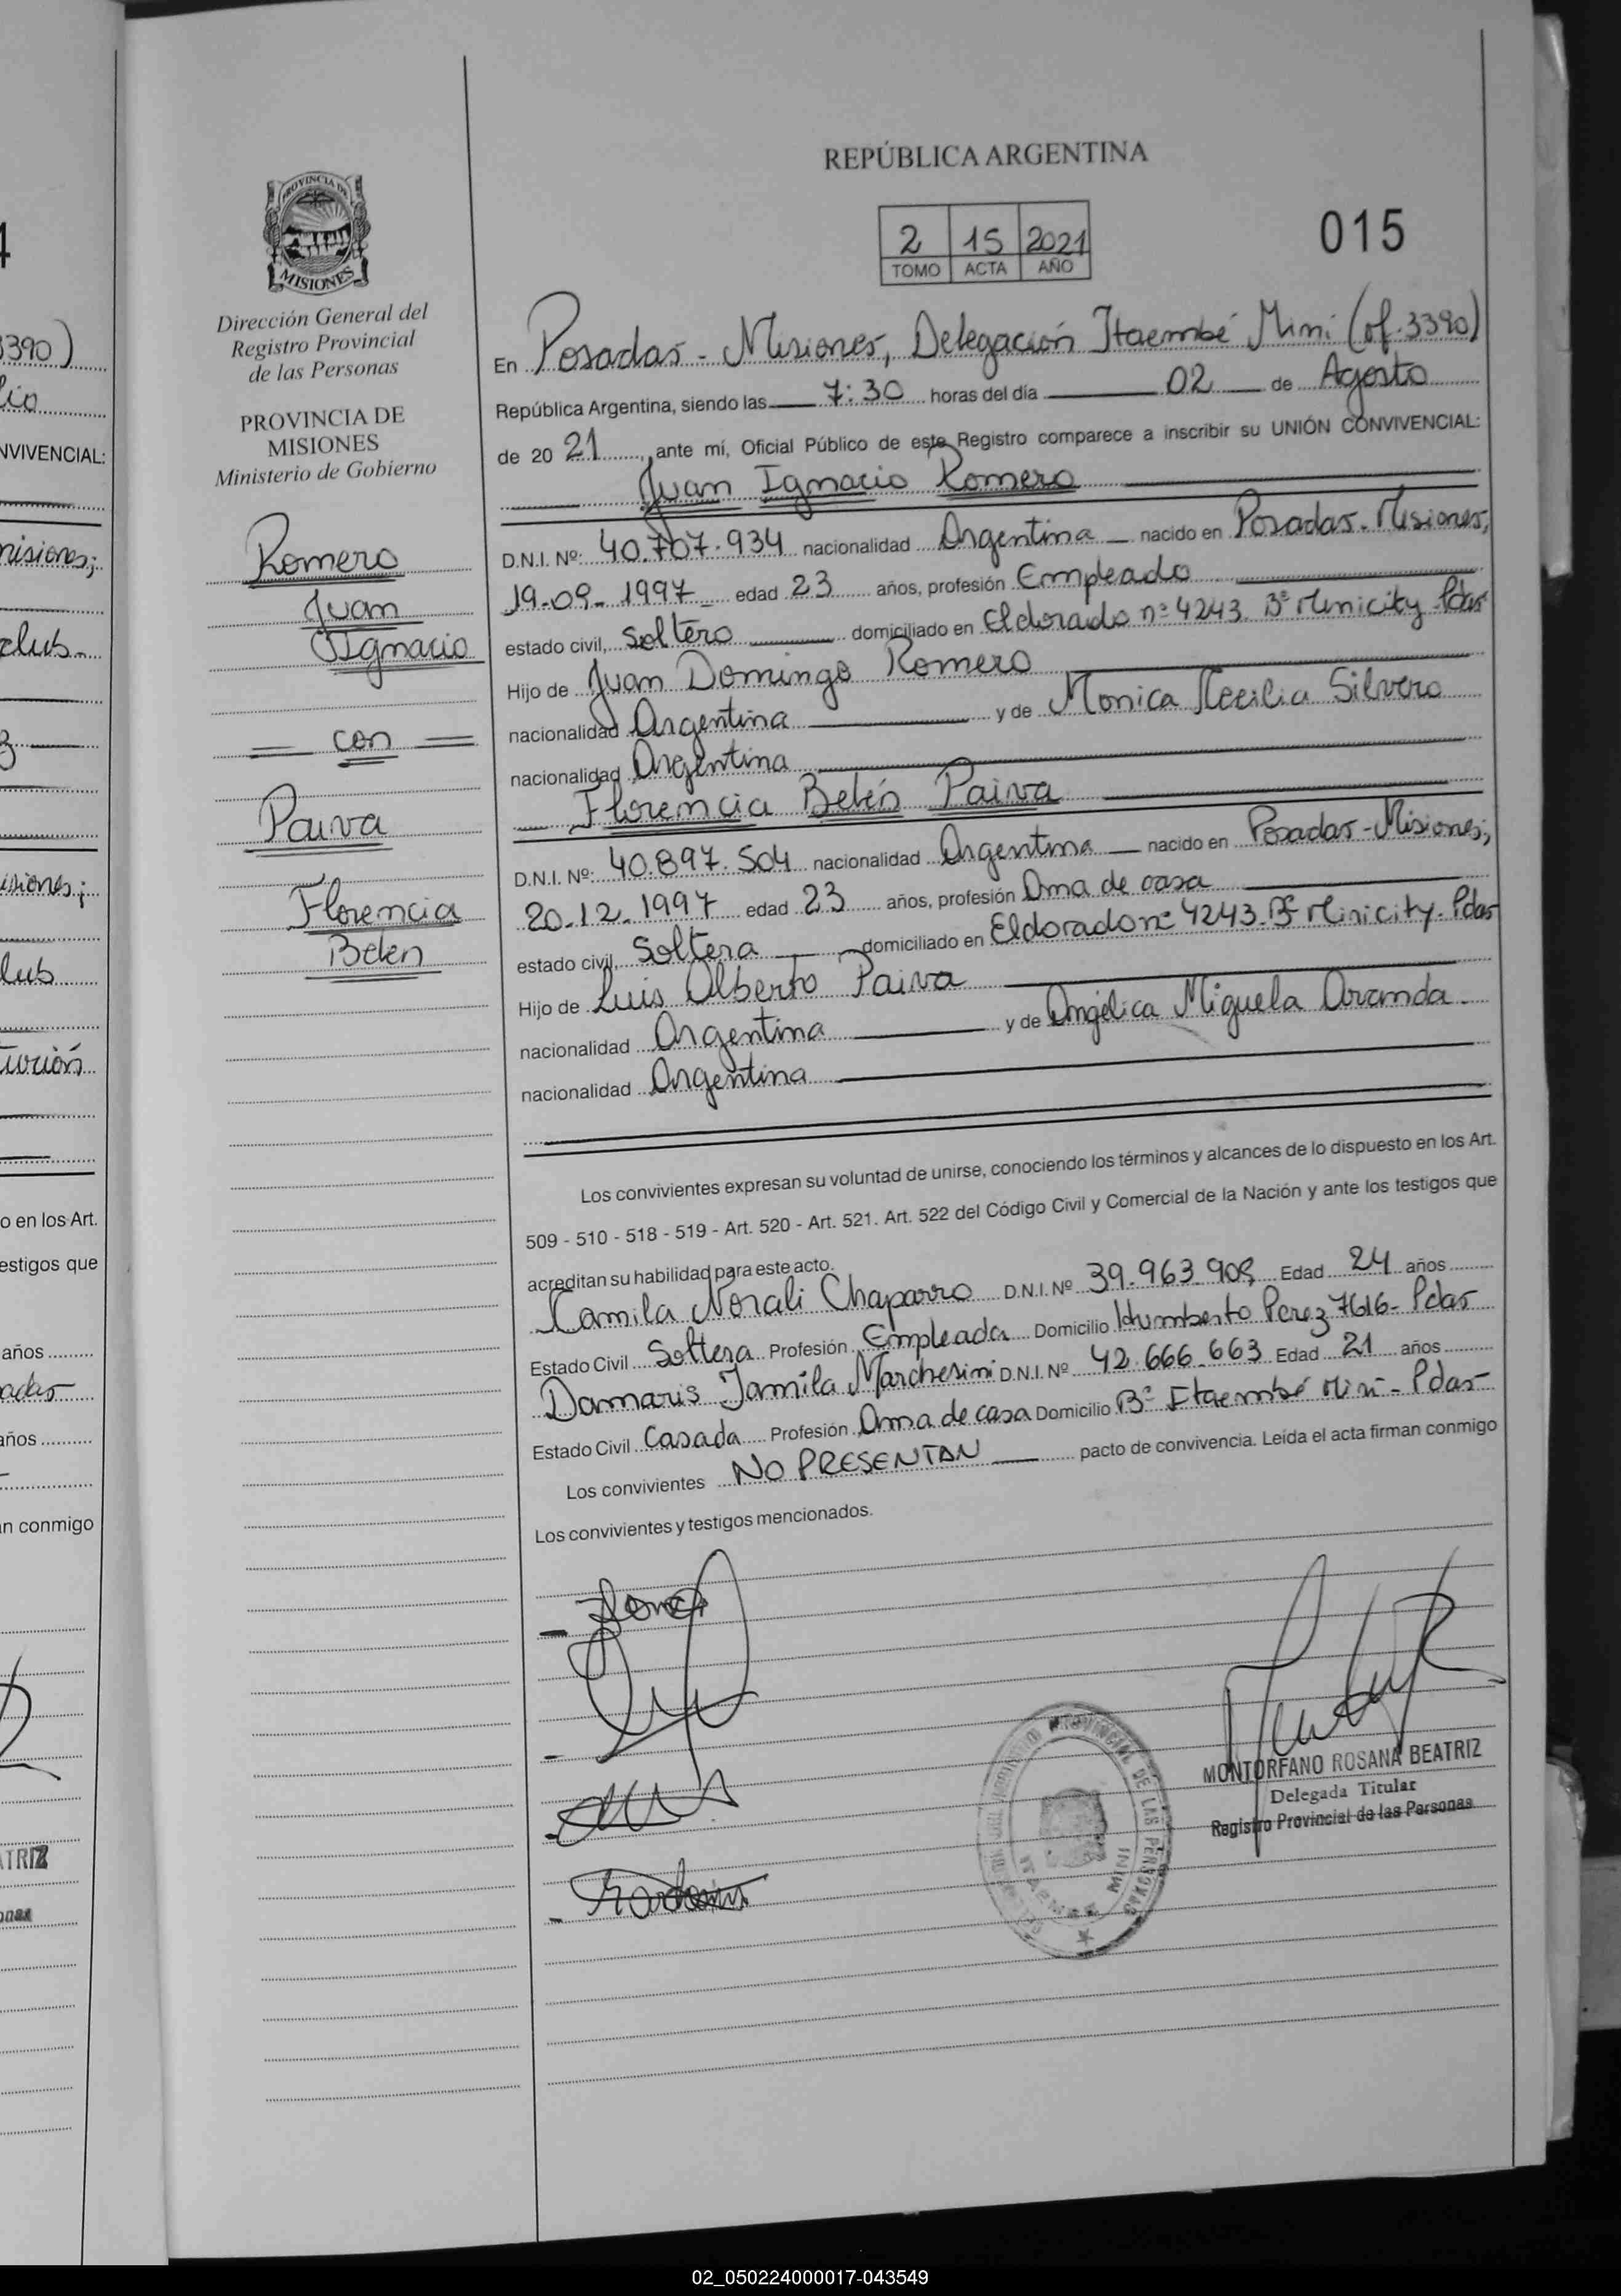 REPÚBLICA ARGENTINA
2 15 2021
TOMO ACTA AÑO
015
PROVINCIA DE
MISIONES
Dirección General del
Registro Provincial
de las Personas
PROVINCIA DE
MISIONES
Ministerio de Gobierno
Romero
Juan
Ignacio
con
Paiva
Florencia
Belén
En Posadas - Misiones, Delegación Itaembé Mini (of. 3390)
República Argentina, siendo las 7:30 horas del día 02 de Agosto
de 20 21, ante mí, Oficial Público de este Registro comparece a inscribir su UNIÓN CONVIVENCIAL:
Juan Ignacio Romero
D.N.I. Nº: 40.707.934 nacionalidad Argentina nacido en Posadas - Misiones,
19-09-1997 edad 23 años, profesión Empleado
estado civil, Soltero domiciliado en Eldorado nº 4243. Bº Minicity - Pdas
Hijo de Juan Domingo Romero
nacionalidad Argentina y de Monica Cecilia Silvero
nacionalidad Argentina
Florencia Belén Paiva
D.N.I. Nº: 40.897.504 nacionalidad Argentina nacido en Posadas - Misiones;
20-12-1997 edad 23 años, profesión Ama de casa
estado civil, Soltera domiciliado en Eldorado nº 4243. Bº Minicity - Pdas
Hijo de Luis Alberto Paiva
nacionalidad Argentina y de Angélica Miguela Aranda
nacionalidad Argentina
Los convivientes expresan su voluntad de unirse, conociendo los términos y alcances de lo dispuesto en los Art.
509 - 510 - 518 - 519 - Art. 520 - Art. 521. Art. 522 del Código Civil y Comercial de la Nación y ante los testigos que
acreditan su habilidad para este acto.
Camila Norali Chaparro D.N.I. Nº 39.963.909 Edad 24 años
Estado Civil Soltera Profesión Empleada Domicilio Humberto Perez 7616 - Pdas
Damaris Jamila Marchesini D.N.I. Nº 42.666.663 Edad 21 años
Estado Civil Casada Profesión Ama de casa Domicilio Bº Itaembé Mini - Pdas
Los convivientes NO PRESENTAN pacto de convivencia. Leída el acta firman conmigo
Los convivientes y testigos mencionados.
MONTORFANO ROSANA BEATRIZ
Delegada Titular
Registro Provincial de las Personas
PROVINCIAL DE LAS PERSONAS
ITAEMBE MINI
02_050224000017-043549